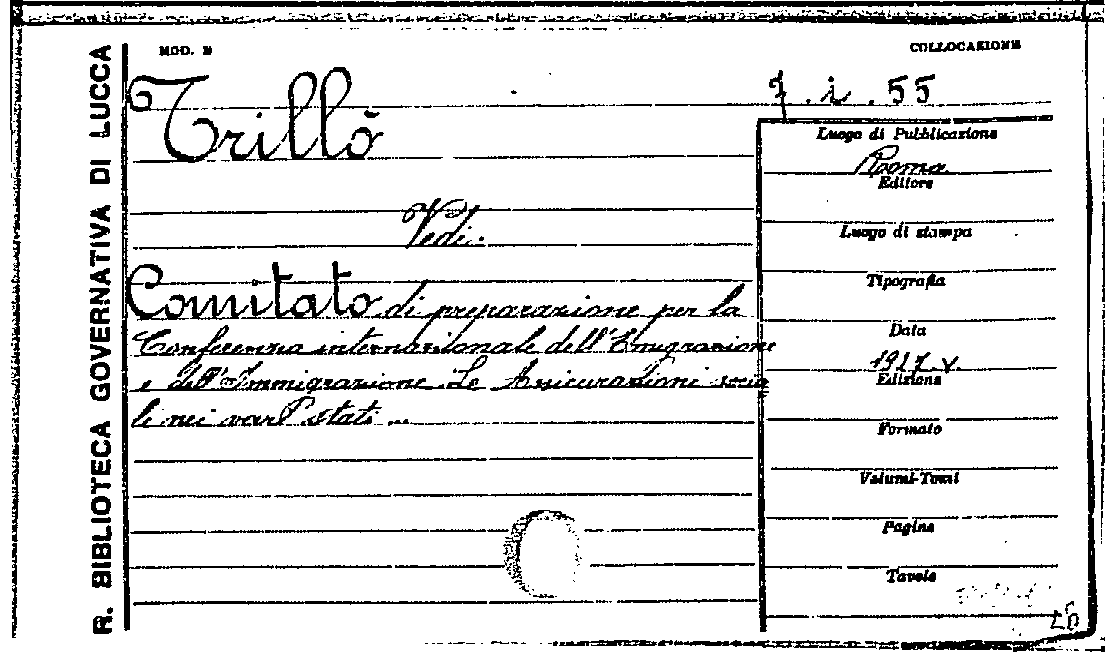 R. BIBLIOTECA GOVERNATIVA DI LUCCA
MOD. B
COLLOCAZIONE
7. i. 55
Trillò
Vedi.
Comitato di preparazione per la
Conferenza internazionale dell'Emigrazione
e dell'Immigrazione. Le Assicurazioni socia
li nei varî stati ...
Luogo di Pubblicazione
Roma
Editore
Luogo di stampa
Tipografia
Data
Edizione
Formato
Volumi-Tomi
Pagine
Tavole